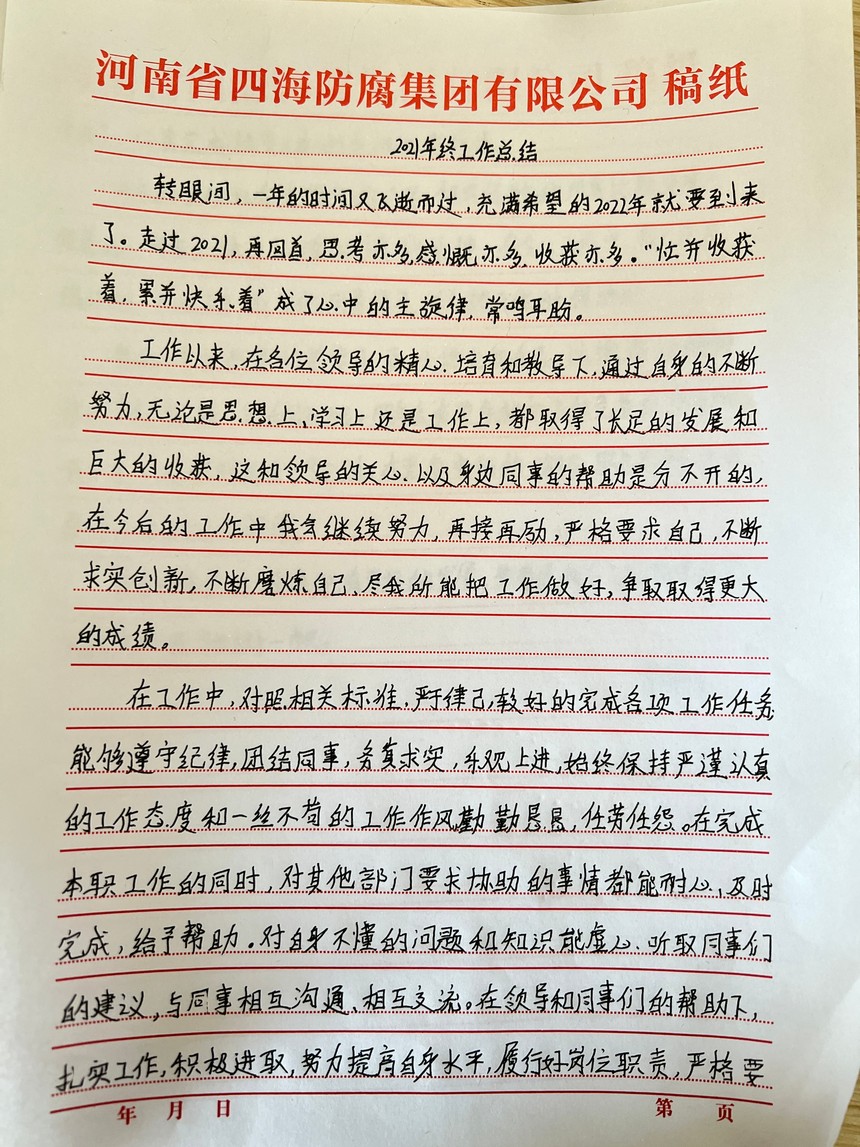 河南省四海防腐集团有限公司 稿纸
2021年终工作总结
转眼间，一年的时间又飞逝而过，充满希望的2022年就要到来
了。走过2021，再回首，思考亦多，感慨亦多，收获亦多。“忙并收获
着，累并快乐着”成了心中的主旋律，常鸣耳盼。
工作以来，在各位领导的精心培育和教导下，通过自身的不断
努力，无论是思想上、学习上还是工作上，都取得了长足的发展和
巨大的收获，这和领导的关心以及身边同事的帮助是分不开的，
在今后的工作中我会继续努力，再接再励，严格要求自己，不断
求实创新，不断磨炼自己，尽我所能把工作做好，争取取得更大
的成绩。
在工作中，对照相关标准，严于律己，较好的完成各项工作任务，
能够遵守纪律，团结同事，务真求实，乐观上进，始终保持严谨认真
的工作态度和一丝不苟的工作作风勤勤恳恳，任劳任怨。在完成
本职工作的同时，对其他部门要求协助的事情都能耐心、及时
完成，给予帮助。对自身不懂的问题和知识能虚心听取同事们
的建议，与同事相互沟通、相互交流。在领导和同事们的帮助下，
扎实工作，积极进取，努力提高自身水平，履行好岗位职责，严格要
年 月 日 第 页